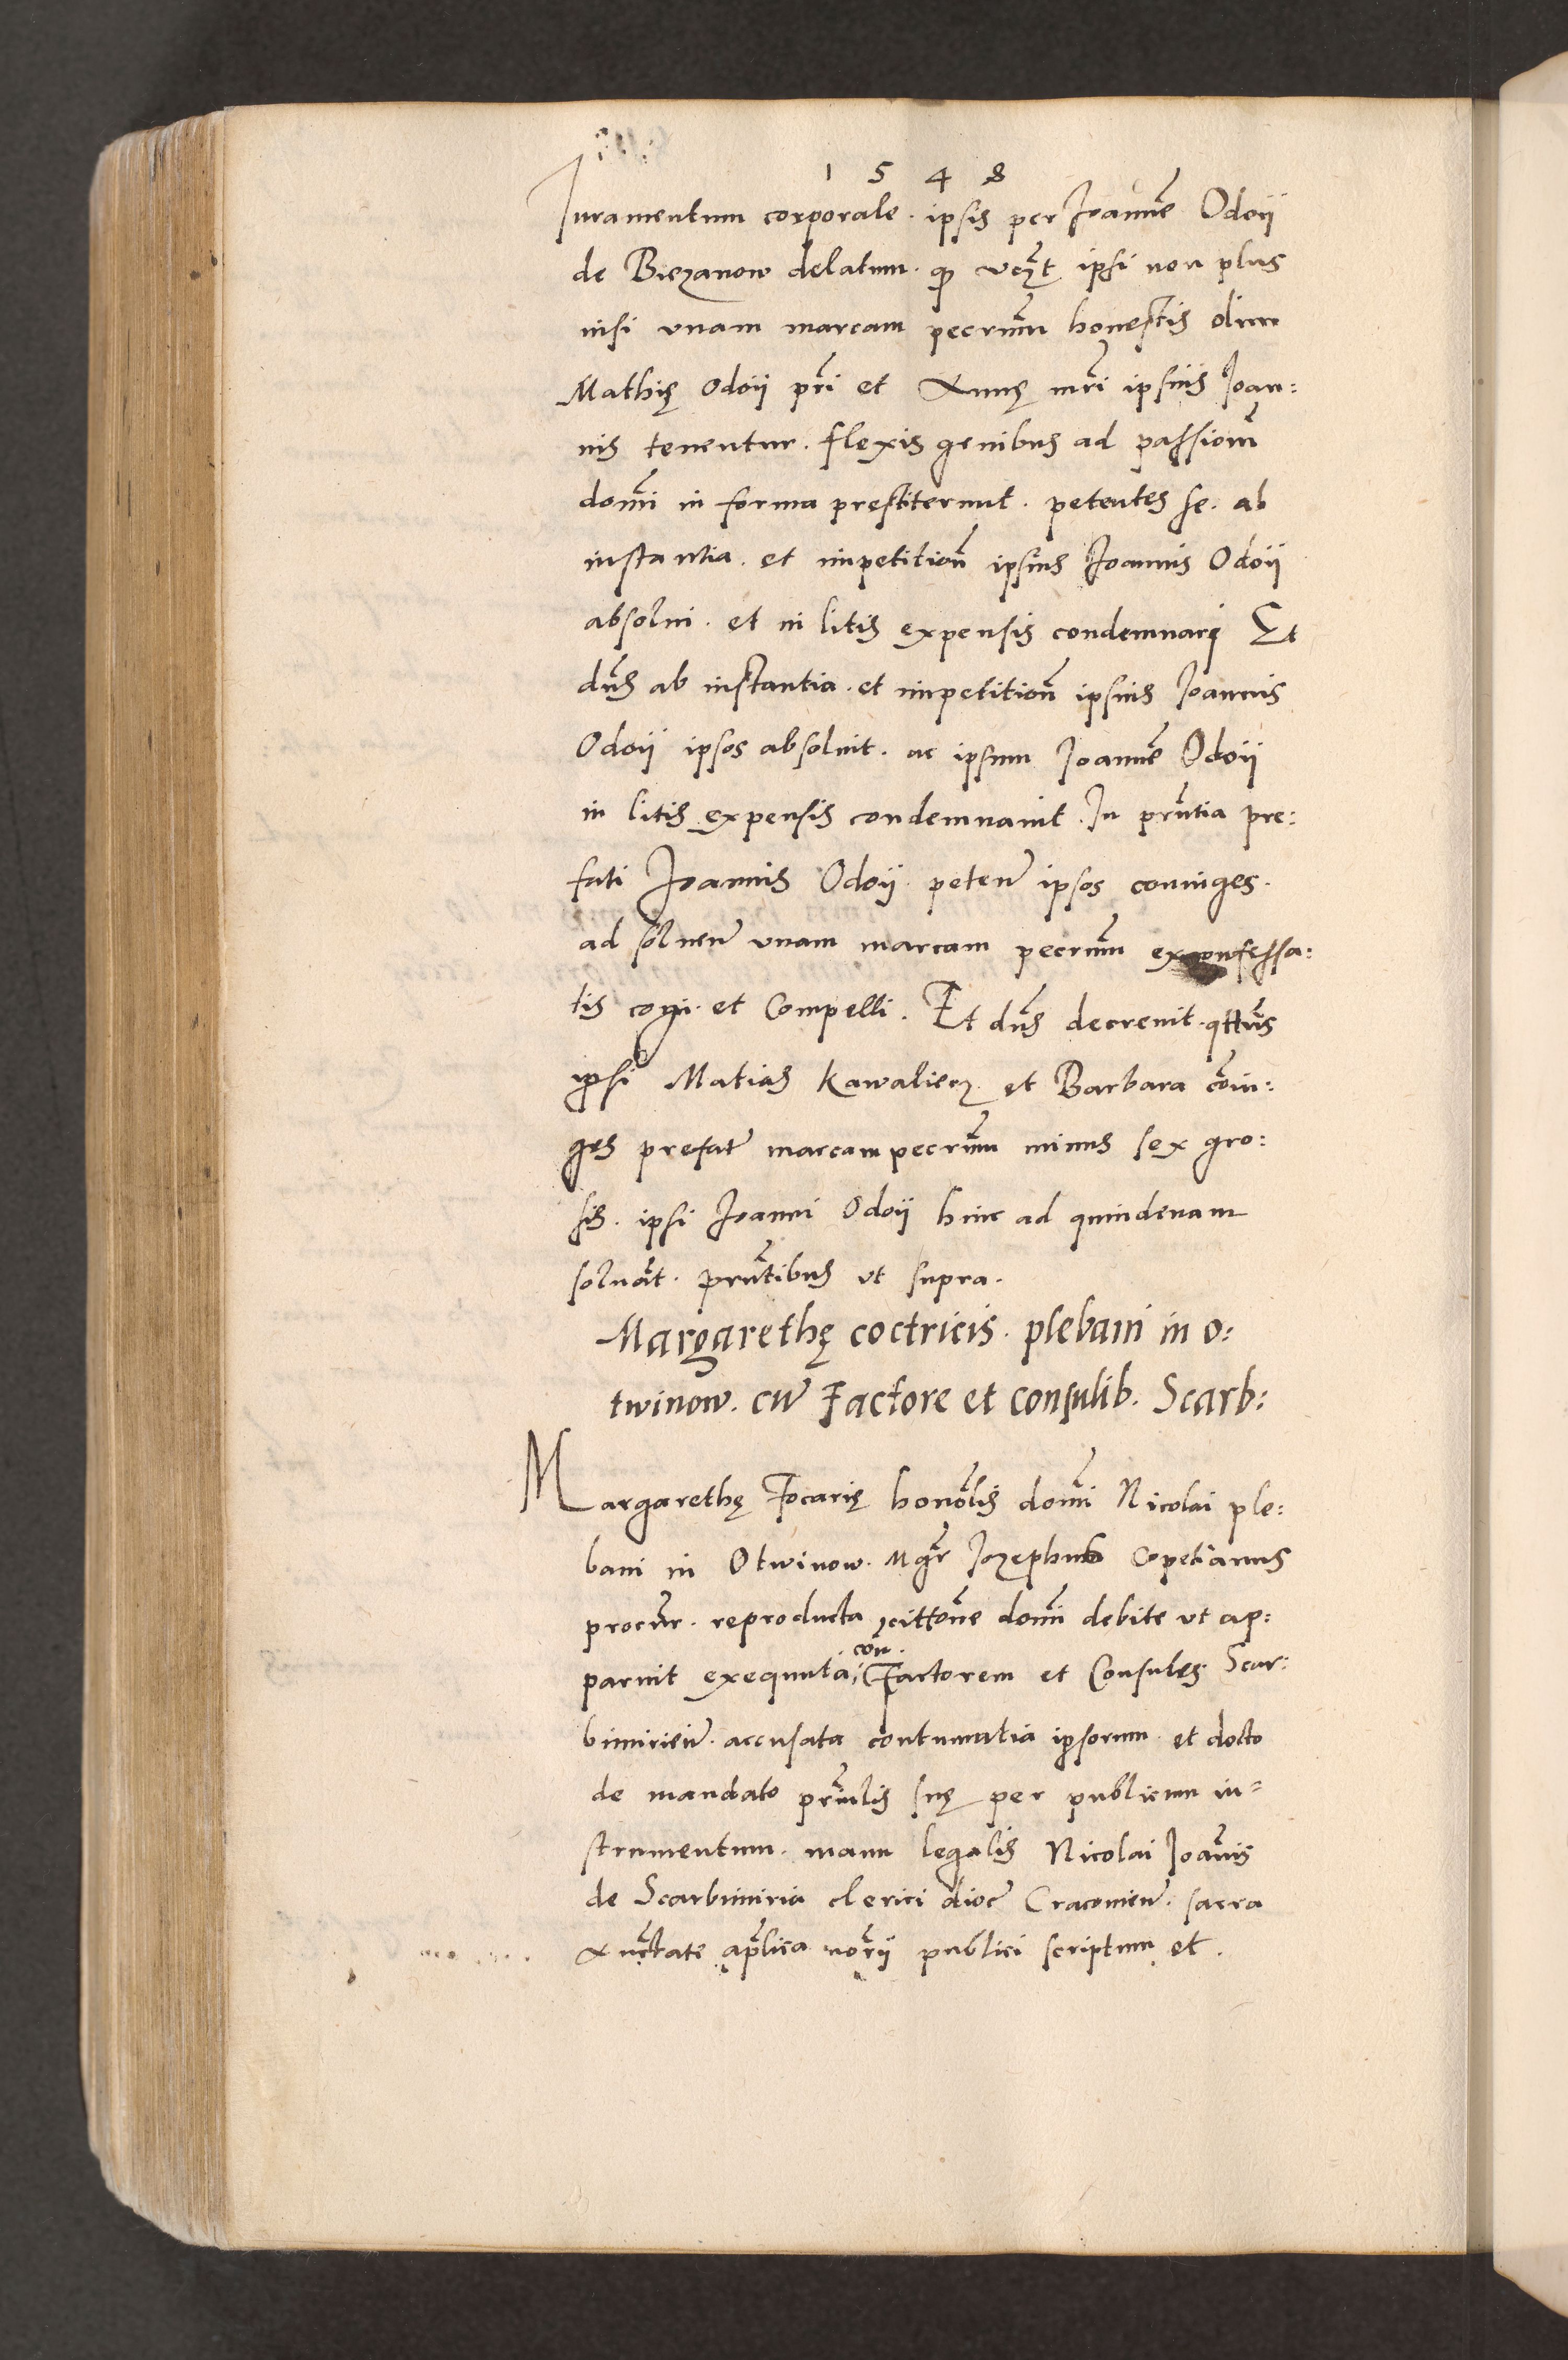 1548
Iuramentum corporale. ipsis per Joannē Odoÿ
de Biezanow delatum. ꝙ vcꝫt ipsi non plus
nisi vnam marcam pecrum̄ honestis olim
Mathię Odoÿ pr̄i et Annę mr̄i ipsius Joan:
nis tenentur. flexis genibus ad passiom̄
domi̅ in forma prestiterunt. petentes se. ab
instantia. et impetition̄ ipsius Joannis Odoÿ
absolui. et in litis expensis condemnari Et
dn̄s ab instantia. et impetition̄ ipsius Joannis
Odoÿ ipsos absoluit. ac ipsum Joannē Odoÿ
in litis expensis condemnauit. In prn̄tia pre:
fati Joannis Odoÿ. peteñ ipsos coniuges.
ad solueñ vnam marcam pecrum̄ ex confessa:
tis cogi. et Compelli. Et dn̄s decreuit. qtt̄us
ipsi Matias Kawaliecz et Barbara cōiu:
ges prefatā marcam pecrum̄ minus sex gro:
sis. ipsi Joanni Odoÿ hinc ad quindenam
soluāt. prn̄tibus vt supra.
Margarethę coctricis. plebani in o:
twinow. cū Factore et consulib. Scarb:
Margarethę Focarię honōlis domi̅ Nicolai ple:
bani in Otwinow. Mgr̄ Jozephus Copetianus
procūr. reproducta citton̄e domi̅ debite vt ap:
paruit exequuta, coñ. Factorem et Consules Scar:
bimirień. accusata contumatia ipsorum. et docto
de mandato prin̄lis suę per publicum in=
strumentum. manu legalis Nicolai Joān̄is
de Scarbimiria clerici dioc̄ Cracouień. sacra
Auct̄tate ap̄lica nor̄ij publici scriptum et.